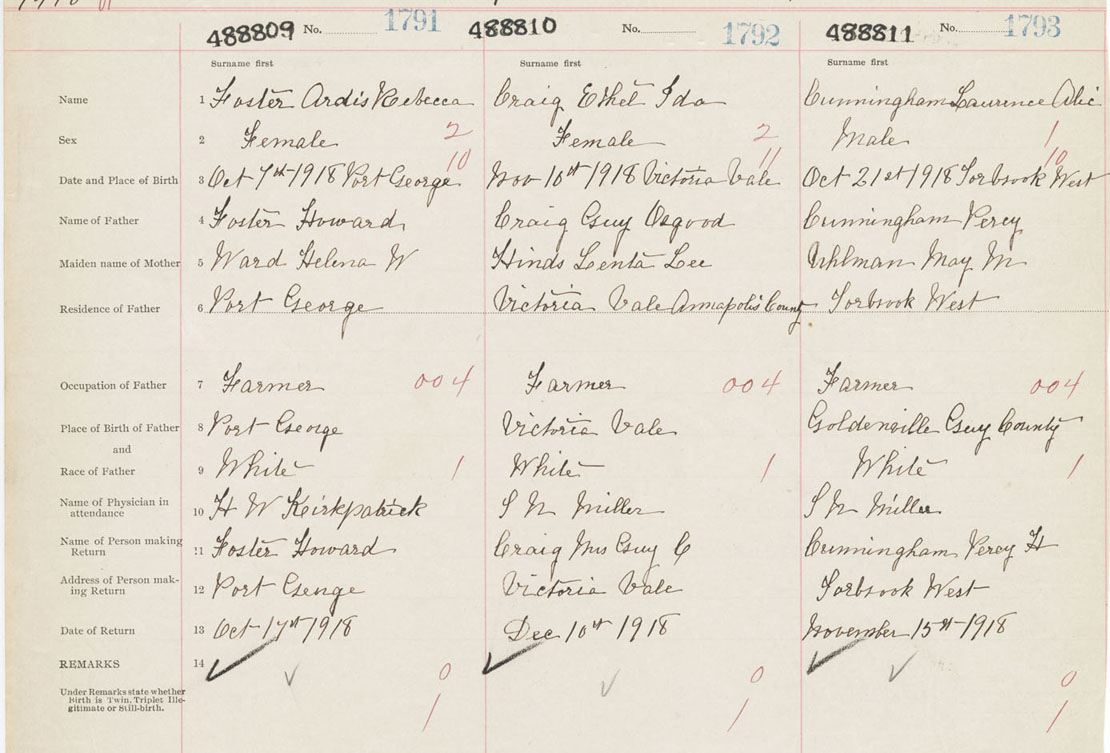 488809 No. 1791 488810 No. 1792 488811 No. 1793
Surname first Surname first Surname first
Name 1 Foster Ardis Rebecca Craig Ethel Ida Cunningham Laurence Alic
Sex 2 Female 2 Female 2 Male 1
10 11 10
Date and Place of Birth 3 Oct 7th 1918 Port George Nov 10st 1918 Victoria Vale Oct 21st 1918 Torbrook West
Name of Father 4 Foster Howard Craig Guy Osgood Cunningham Percy
Maiden name of Mother 5 Ward Helena W Hinds Lenta Lee Uhlman May M
Residence of Father 6 Port George Victoria Vale Annapolis County Torbrook West
Occupation of Father 7 Farmer 004 Farmer 004 Farmer 004
Place of Birth of Father 8 Port George Victoria Vale Goldenville Guy County
and
Race of Father 9 White 1 White 1 White 1
Name of Physician in
attendance 10 H W Keirkpatrick S N Miller S N Miller
Name of Person making
Return 11 Foster Howard Craig Mrs Guy C Cunningham Percy H
Address of Person mak-
ing Return 12 Port George Victoria Vale Torbrook West
Date of Return 13 Oct 17th 1918 Dec 10st 1918 November 15st 1918
REMARKS 14
0 0 0
Under Remarks state whether
Birth is Twin, Triplet Ille-
gitimate or Still-birth.
1 1 1